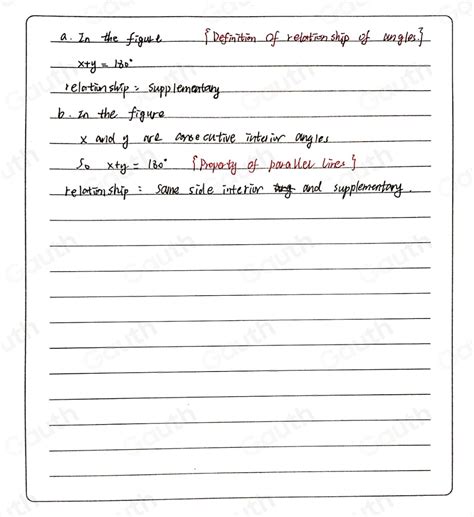 a. In the figure {Definition of relationship of angles}
x+y = 180°
relationship : supplementary
b. In the figure
x and y are consecutive interior angles
So x+y = 180° {Property of parallel lines}
relationship : same side interior and supplementary.
Gauth